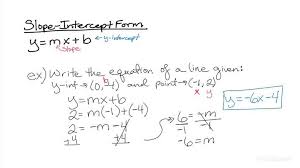 Slope-Intercept Form
y = mx + b ← y-intercept
slope
ex) Write the equation of a line given:
b
y-int → (0, -4) and point → (-1, 2)
x y
y = mx + b
2 = m(-1) + (-4)
2 = -m - 4
+4 +4
6 = -m
-1 -1
-6 = m
y = -6x - 4